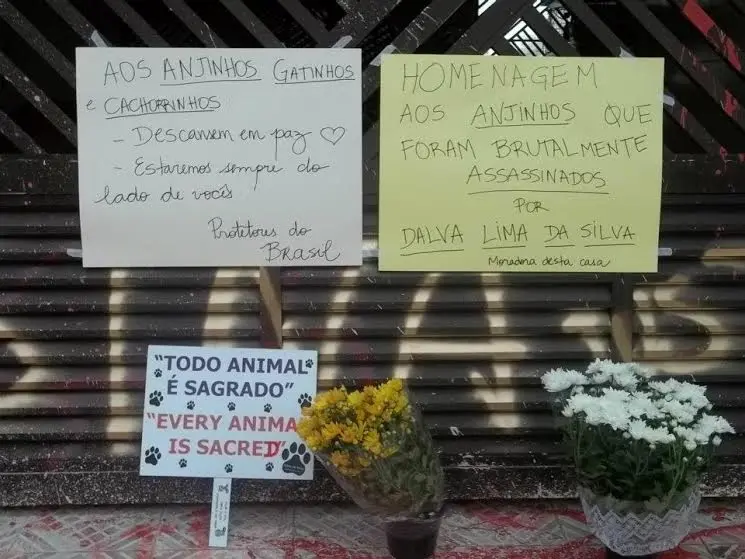 AOS ANJINHOS GATINHOS
e CACHORRINHOS
- Descansem em paz ♡
- Estaremos sempre do
lado de vocês
Protetores do
Brasil
HOMENAGEM
AOS ANJINHOS QUE
FORAM BRUTALMENTE
ASSASSINADOS
POR
DALVA LIMA DA SILVA
Moradora desta casa
"TODO ANIMAL
É SAGRADO"
"EVERY ANIMA
IS SACRED"